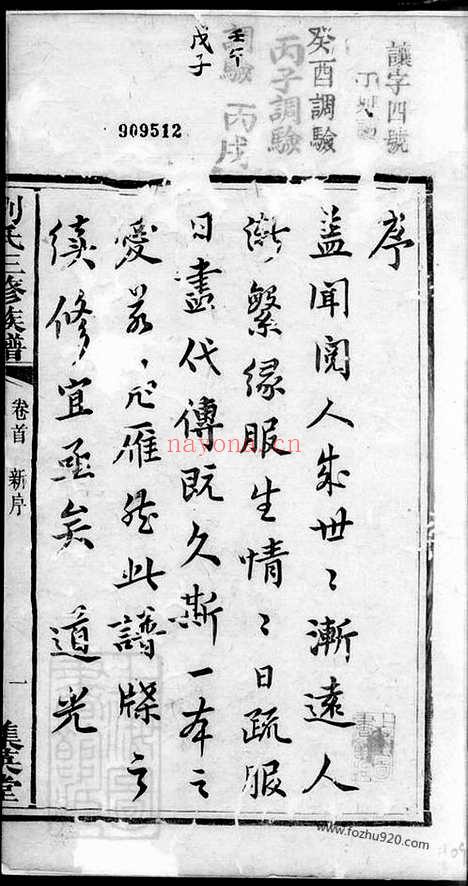 讓字四號
癸酉調驗
丙子調驗
調驗 丙戌
壬午
戊子
909512
序
蓋聞閱人成世〻漸遠人
漸繁緣服生情〻日疏服
日盡代傳既久漸一本之
愛雁然此譜牒之
續修宜亟矣 道光
劉氏三修族譜
卷首 新序
一
集英堂
nayona.cn
www.fozhu920.com